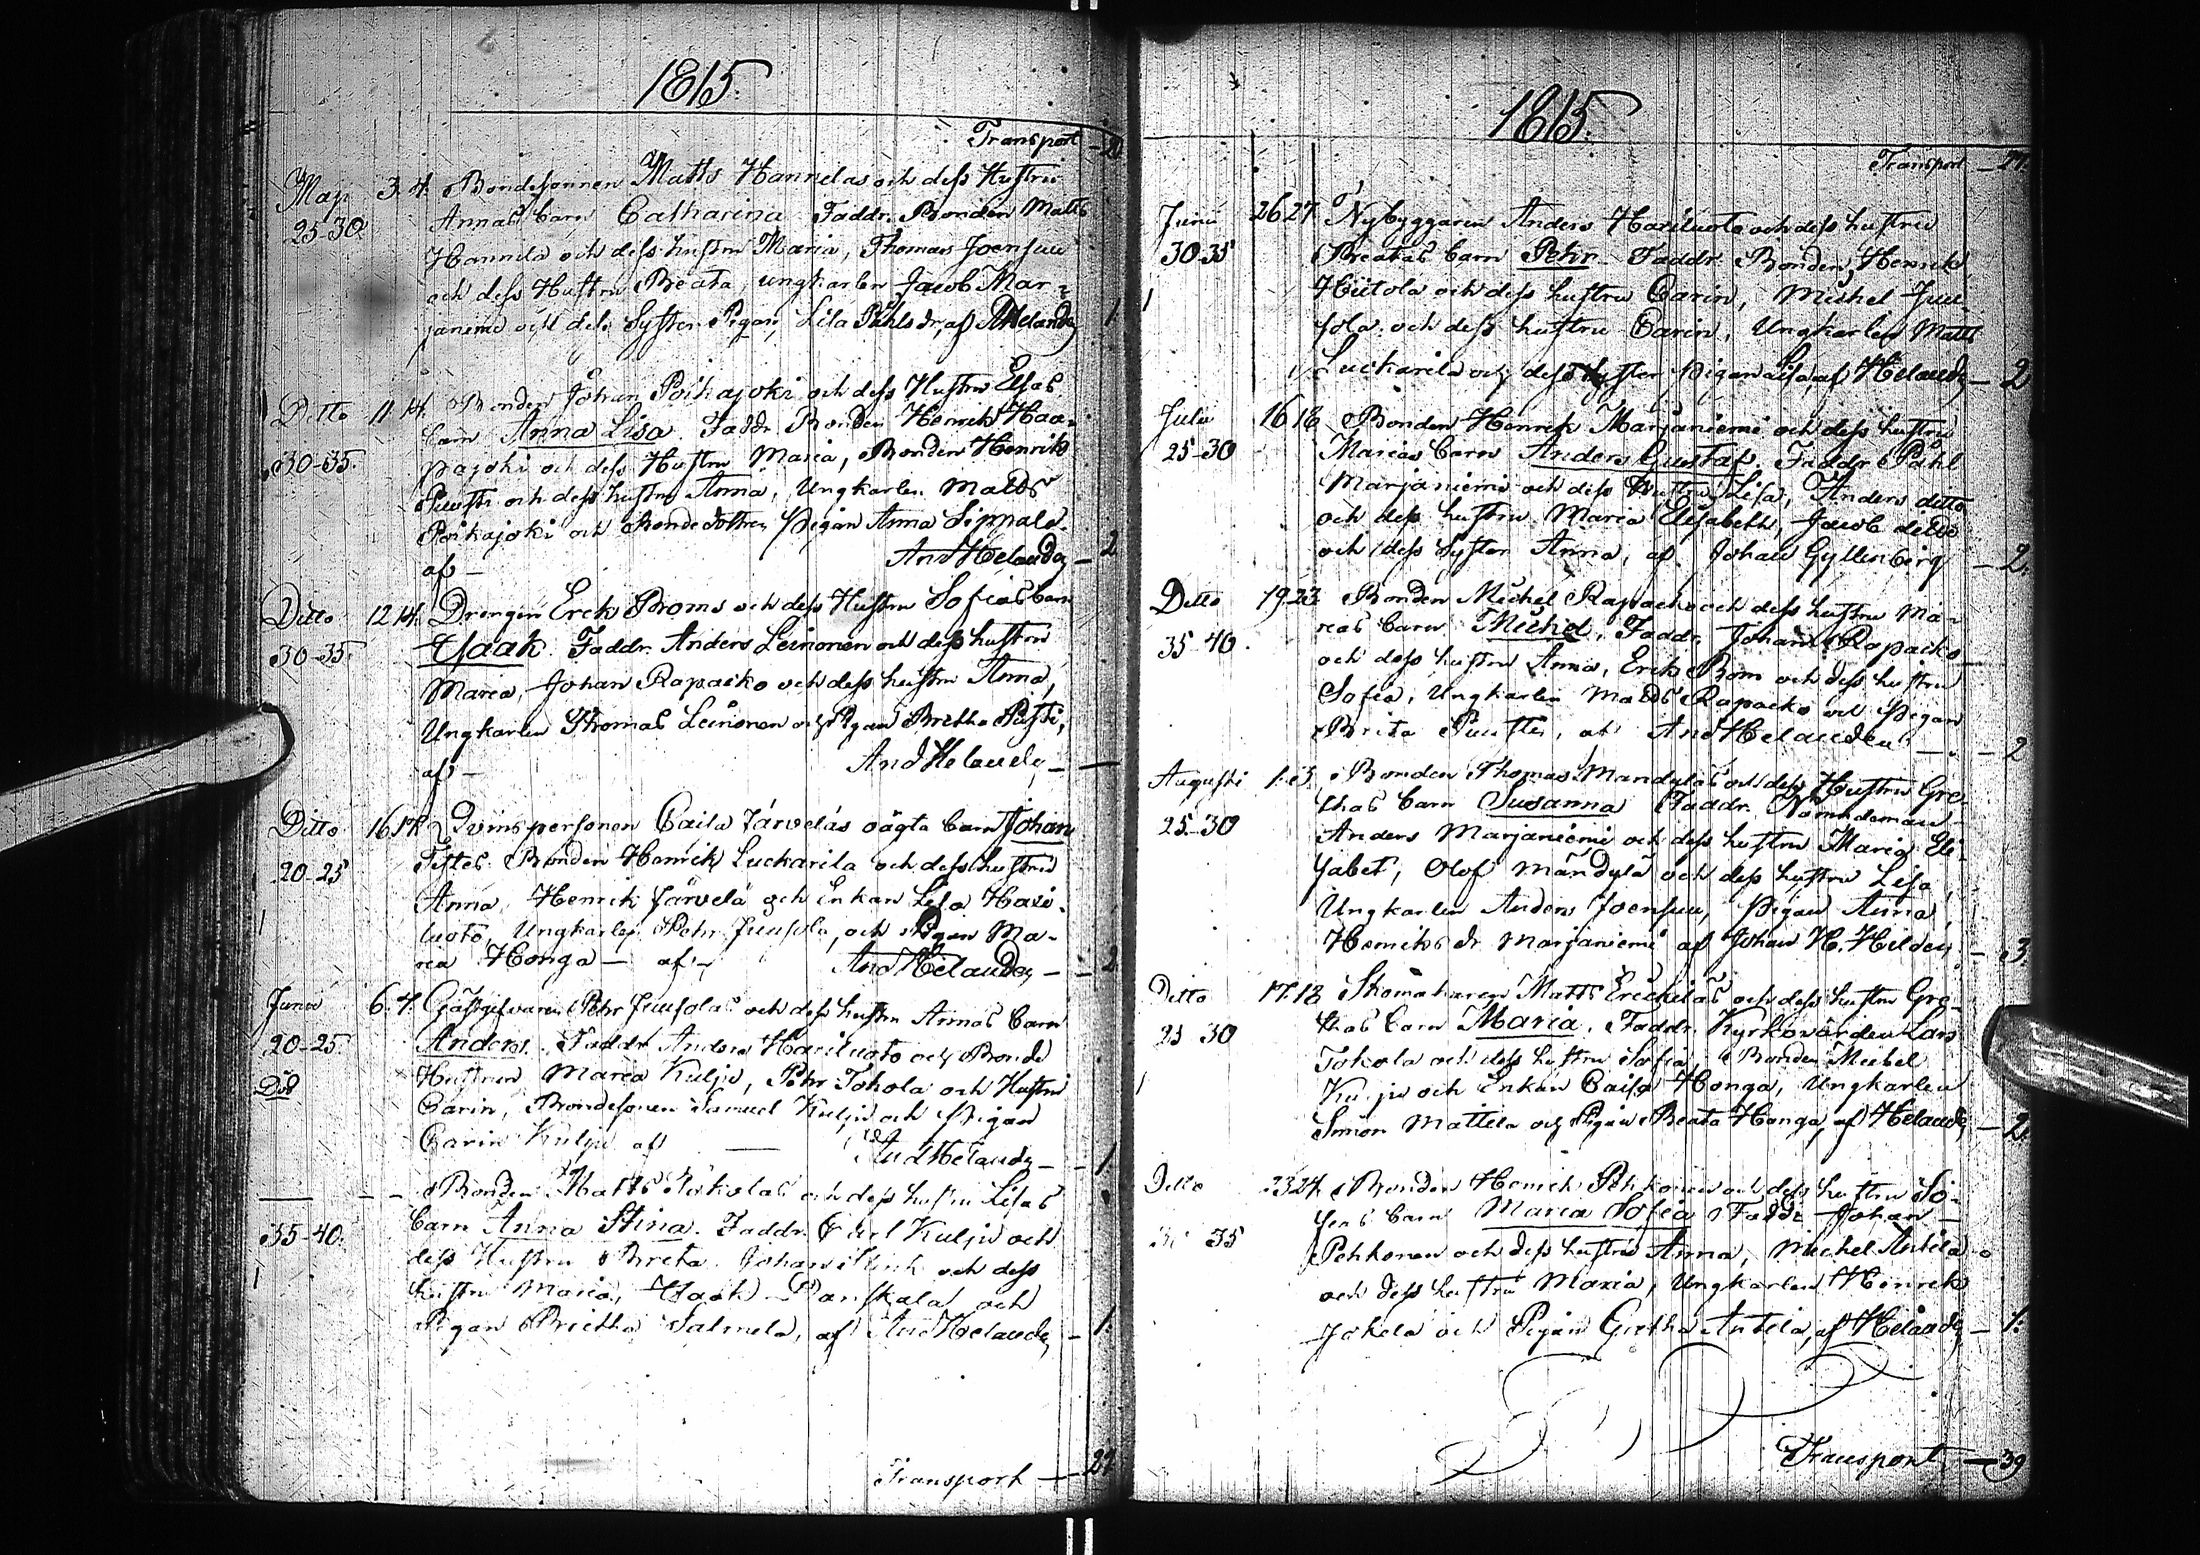 1815.
Transport — 20
Maji 3. 4. Bondesonnen Matts Hannelas och dess Hustru
25-30 Annas barn Catharina Faddr. Bonden Matts
Hannila och dess hustru Maria, Thomas Joensuu
och dess Hustru Beata, ungkarlen Jacob Mar-
janiemi och dess Syster Pigan, Lisa Påhls dr, af AHelander 1
Ditto 11. 14. Bonden Johan Poikajoki och dess Hustru Elsas
barn Anna Lisa. Faddr. Bonden Henrik Haa-
30-35. pajoki och dess Hustru Maria, Bonden Henrik
Puusti och dess hustru Anna, Ungkarlen Matts
Poikajoki och Bondedottren Pigan Anna Sippala.
af — And Helander — 2
Ditto 12. 14. Drengen Erek Broms och dess Hustru Sofias barn
30-35. Isaak. Faddr. Anders Leinonen och dess hustru
Maria, Johan Rapacko och dess hustru Anna,
Ungkarlen Thomas Leinonen och Pigan Britha Pusti,
af — And Helander — —
Ditto 16. 17. Qvinspersonen Caisa Järveläs oägta barn Johan
20-25 Testes Bonden Henrik Luckarila och dess hustru
Anna, Henrik Järvelä och Enkan Lisa Hari-
luoto, Ungkarlen Pehr Juusola, och Pigan Ma-
ria Honga — af — And Helander — 2
Junii 6. 7. Gästgifvaren Pehr Juusolas och dess hustru Annas barn
20-25 Anders. Faddr. Anders Hariluoto och Bonde
Död Hustrun Maria Kulju, Pehr Tokola och Hustru
Carin, Bondesonen Samuel Kulju och Pigan
Carin Kulju af — And Helander — 1.
— — Bonden Matts Tokolas och dess hustru Lisas
35-40. barn Anna Stina. Faddr. Carl Kulju och
dess Hustru Breta, Johan och dess
hustru Maria, Isack Panskala och
Pigan Brietha Salmela, af And Helander — 1.
Transport — 27
1815.
Transport — 27.
Junii 26 27 Nybyggaren Anders Hariluoto och dess hustru
30-35 Beatas barn Pehr. Faddr. Bonden Henrik
Hiitola och dess hustru Carin, Michel Juu
sola och dess hustru Carin, Ungkarlen Matts
Luckarila och dess syster Pigan Lisa, af Helander — 2
Julii 16 18 Bonden Henrik Marjaniemi och dess hustru
25-30 Marias barn Anders Gustaf. Faddr. Påhl
Marjaniemi och dess Hustru Lisa, Anders ditto
och dess hustru Maria Elisabeth, Jacob ditto
och dess Syster Anna, af Johan Gyllenberg — 2.
Ditto 19. 23 Bonden Michel Rapacko och dess hustru Ma-
35-40. rias barn Michel, Faddr. Johan Rapacko
och dess hustru Anna, Erik Brom och dess hustru
Sofia, Ungkarlen Matts Rapacko och Pigan
Brita Puusti, af And Helander — 2
Augusti 1. 3. Bonden Thomas Mandyläs och dess Hustru Gre-
25-30 thas barn Susanna Faddr. Nämndeman
Anders Marjaniemi och dess hustru Maria Eli-
sabet, Olof Mändylä och dess hustru Lisa,
Ungkarlen Anders Joensuu, Pigan Anna
Henriks dr Marjaniemi af Johan H. Helden — 3.
Ditto 17. 18 Skomakaren Matts Ereckiläs och dess hustru Gre-
25 30 thas barn Maria. Faddr. Kyrkovärden Lars
Tokola och dess hustru Sofia, Bonden Michel
Kulju och Enkan Caisa Honga, Ungkarlen
Simon Mattila och Pigan Beata Honga, af Helander — 2.
Ditto 23 24. Bonden Henrik Pehkonen och dess hustru So-
35 fias barn Maria Sofia Faddr. Johan
Pehkonen och dess hustru Anna, Michel Antila
och dess hustru Maria, Ungkarlen Henrik
Jokela och Pigan Gretha Antila, af Helander — 1.
Transport — 39